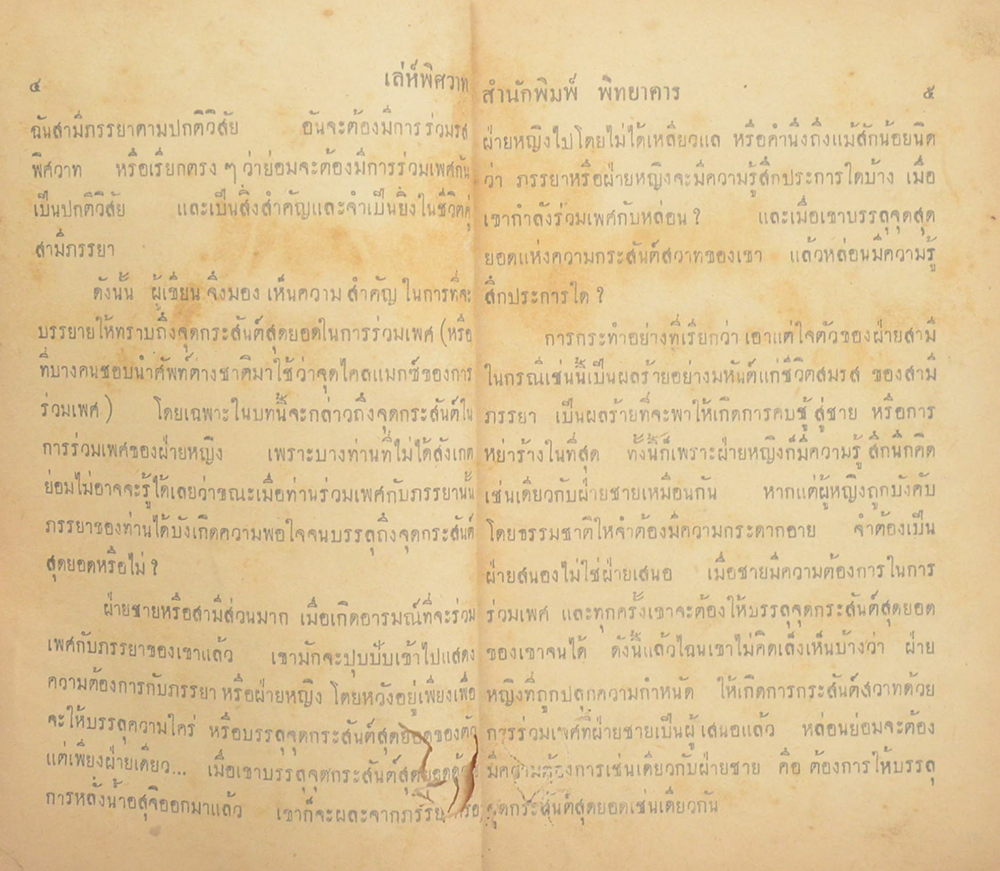 ๔
เล่ห์พิศวาท
ฉันสามีภรรยาตามปกติวิสัย อันจะต้องมีการร่วมรส
พิศวาท หรือเรียกตรง ๆ ว่าย่อมจะต้องมีการร่วมเพศกัน
เป็นปกติวิสัย และเป็นสิ่งสำคัญและจำเป็นยิ่งในชีวิตคู่
สามีภรรยา
ดังนั้น ผู้เขียน จึงมอง เห็นความ สำคัญ ในการที่จะ
บรรยายให้ทราบถึงจุดกระสันต์สุดยอดในการร่วมเพศ (หรือ
ที่บางคนชอบนำศัพท์ต่างชาติมาใช้ว่าจุดไคลแมกซ์ของการ
ร่วมเพศ) โดยเฉพาะในบทนี้จะกล่าวถึงจุดกระสันต์ใน
การร่วมเพศของฝ่ายหญิง เพราะบางท่านที่ไม่ได้สังเกต
ย่อมไม่อาจจะรู้ได้เลยว่าขณะเมื่อท่านร่วมเพศกับภรรยานั้น
ภรรยาของท่านได้บังเกิดความพอใจจนบรรลุถึงจุดกระสันต์
สุดยอดหรือไม่ ?
ฝ่ายชายหรือสามีส่วนมาก เมื่อเกิดอารมณ์ที่จะร่วม
เพศกับภรรยาของเขาแล้ว เขามักจะปุบปับเข้าไปแสดง
ความต้องการกับภรรยา หรือฝ่ายหญิง โดยหวังอยู่เพียงเพื่อ
จะให้บรรลุความใคร่ หรือบรรลุจุดกระสันต์สุดยอดของตัว
แต่เพียงฝ่ายเดียว... เมื่อเขาบรรลุจุดกระสันต์สุดยอดด้วย
การหลั่งน้ำอสุจิออกมาแล้ว เขาก็จะผละจากภรรยาหรือ
สำนักพิมพ์ พิทยาคาร
๕
ฝ่ายหญิงไปโดยไม่ได้เหลียวแล หรือคำนึงถึงแม้สักน้อยนิด
ว่า ภรรยาหรือฝ่ายหญิงจะมีความรู้สึกประการใดบ้าง เมื่อ
เขากำลังร่วมเพศกับหล่อน ? และเมื่อเขาบรรลุจุดสุด
ยอดแห่งความกระสันต์สวาทของเขา แล้วหล่อนมีความรู้
สึกประการใด ?
การกระทำอย่างที่เรียกว่า เอาแต่ใจตัวของฝ่ายสามี
ในกรณีเช่นนี้เป็นผลร้ายอย่างมหันต์แก่ชีวิตสมรส ของสามี
ภรรยา เป็นผลร้ายที่จะพาให้เกิดการคบชู้ สู่ชาย หรือการ
หย่าร้างในที่สุด ทั้งนี้ก็เพราะฝ่ายหญิงก็มีความรู้ สึกนึกคิด
เช่นเดียวกับฝ่ายชายเหมือนกัน หากแต่ผู้หญิงถูกบังคับ
โดยธรรมชาติให้จำต้องมีความกระดากอาย จำต้องเป็น
ฝ่ายสนองไม่ใช่ฝ่ายเสนอ เมื่อชายมีความต้องการในการ
ร่วมเพศ และทุกครั้งเขาจะต้องให้บรรลุจุดกระสันต์สุดยอด
ของเขาจนได้ ดังนี้แล้วไฉนเขาไม่คิดเล็งเห็นบ้างว่า ฝ่าย
หญิงที่ถูกปลุกความกำหนัด ให้เกิดการกระสันต์สวาทด้วย
การร่วมเพศที่ฝ่ายชายเป็นผู้ เสนอแล้ว หล่อนย่อมจะต้อง
มีความต้องการเช่นเดียวกับฝ่ายชาย คือ ต้องการให้บรรลุ
จุดกระสันต์สุดยอดเช่นเดียวกัน